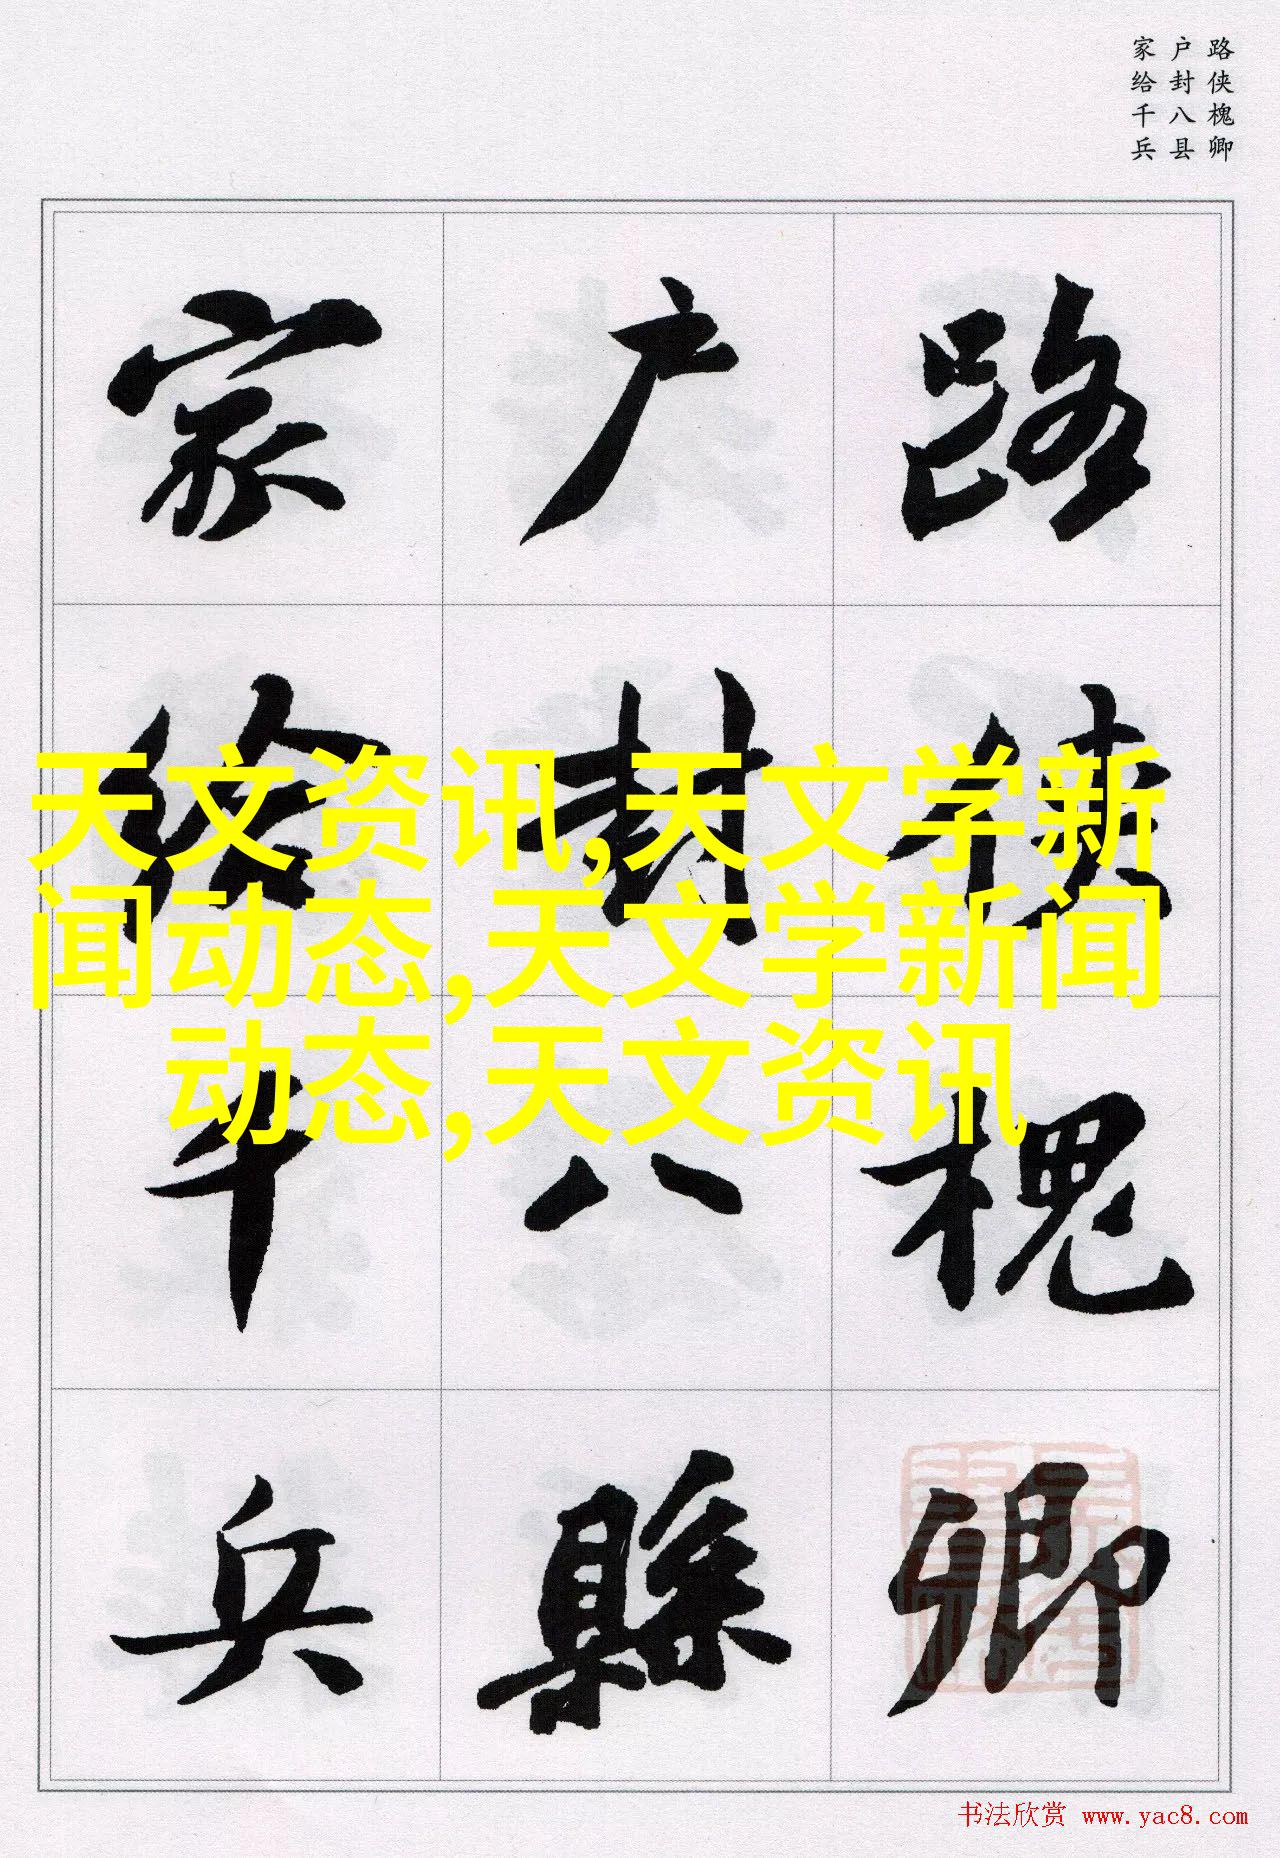 路侠槐卿
户封八县
家给千兵
路侠槐卿
户封八縣
家给千兵
天文资讯,天文学新
闻动态,天文学新闻
动态,天文资讯
书法欣赏 www.yac8.com